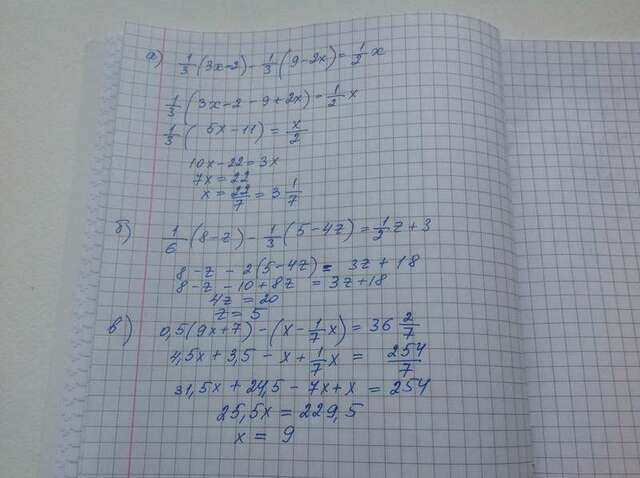 а) 1/3 (3x-2) - 1/3 (9-2x) = 1/2 x
1/3 (3x-2-9+2x) = 1/2 x
1/3 (5x-11) = x/2
10x-22=3x
7x=22
x = 22/7 = 3 1/7
б) 1/6 (8-z) - 1/3 (5-4z) = 1/2 z+3
8-z - 2(5-4z) = 3z+18
8-z-10+8z = 3z+18
4z = 20
z = 5
в) 0,5(9x+7) - (x - 1/7 x) = 36 2/7
4,5x + 3,5 - x + 1/7 x = 254/7
31,5x + 24,5 - 7x + x = 254
25,5x = 229,5
x = 9